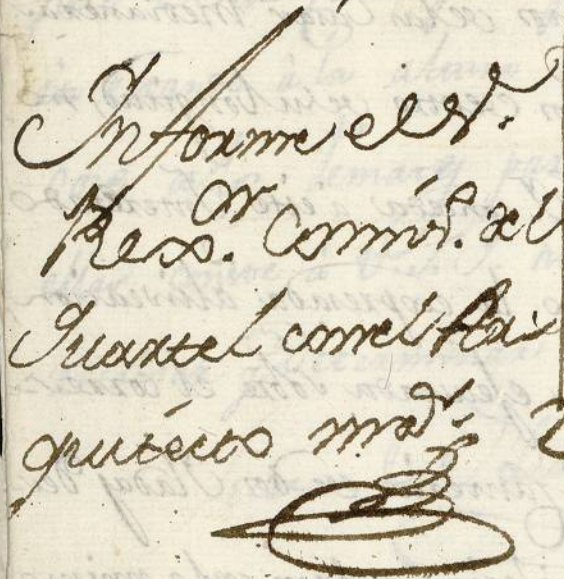 Informe el S.r
Rexx.or Comis.o del
Quartel con el Ar
quitecto m.or